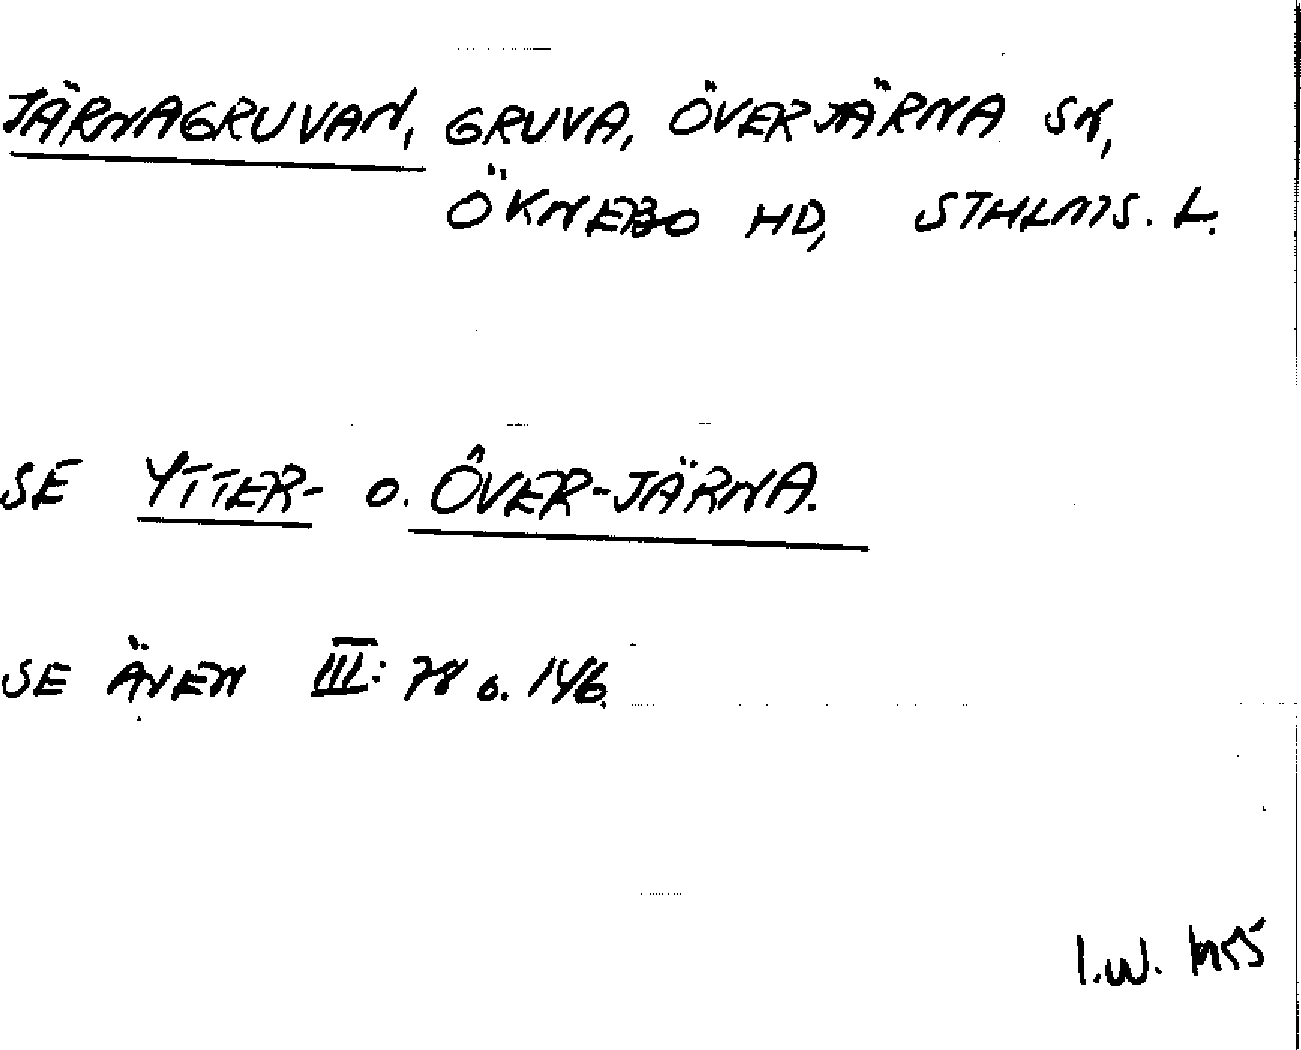 JÄRNAGRUVAN, GRUVA, ÖVERJÄRNA SN,
ÖKNEBO HD, STHLMS. L.
SE YTTER- O. ÖVER-JÄRNA.
SE ÄVEN III: 78 o. 146.
I.W.